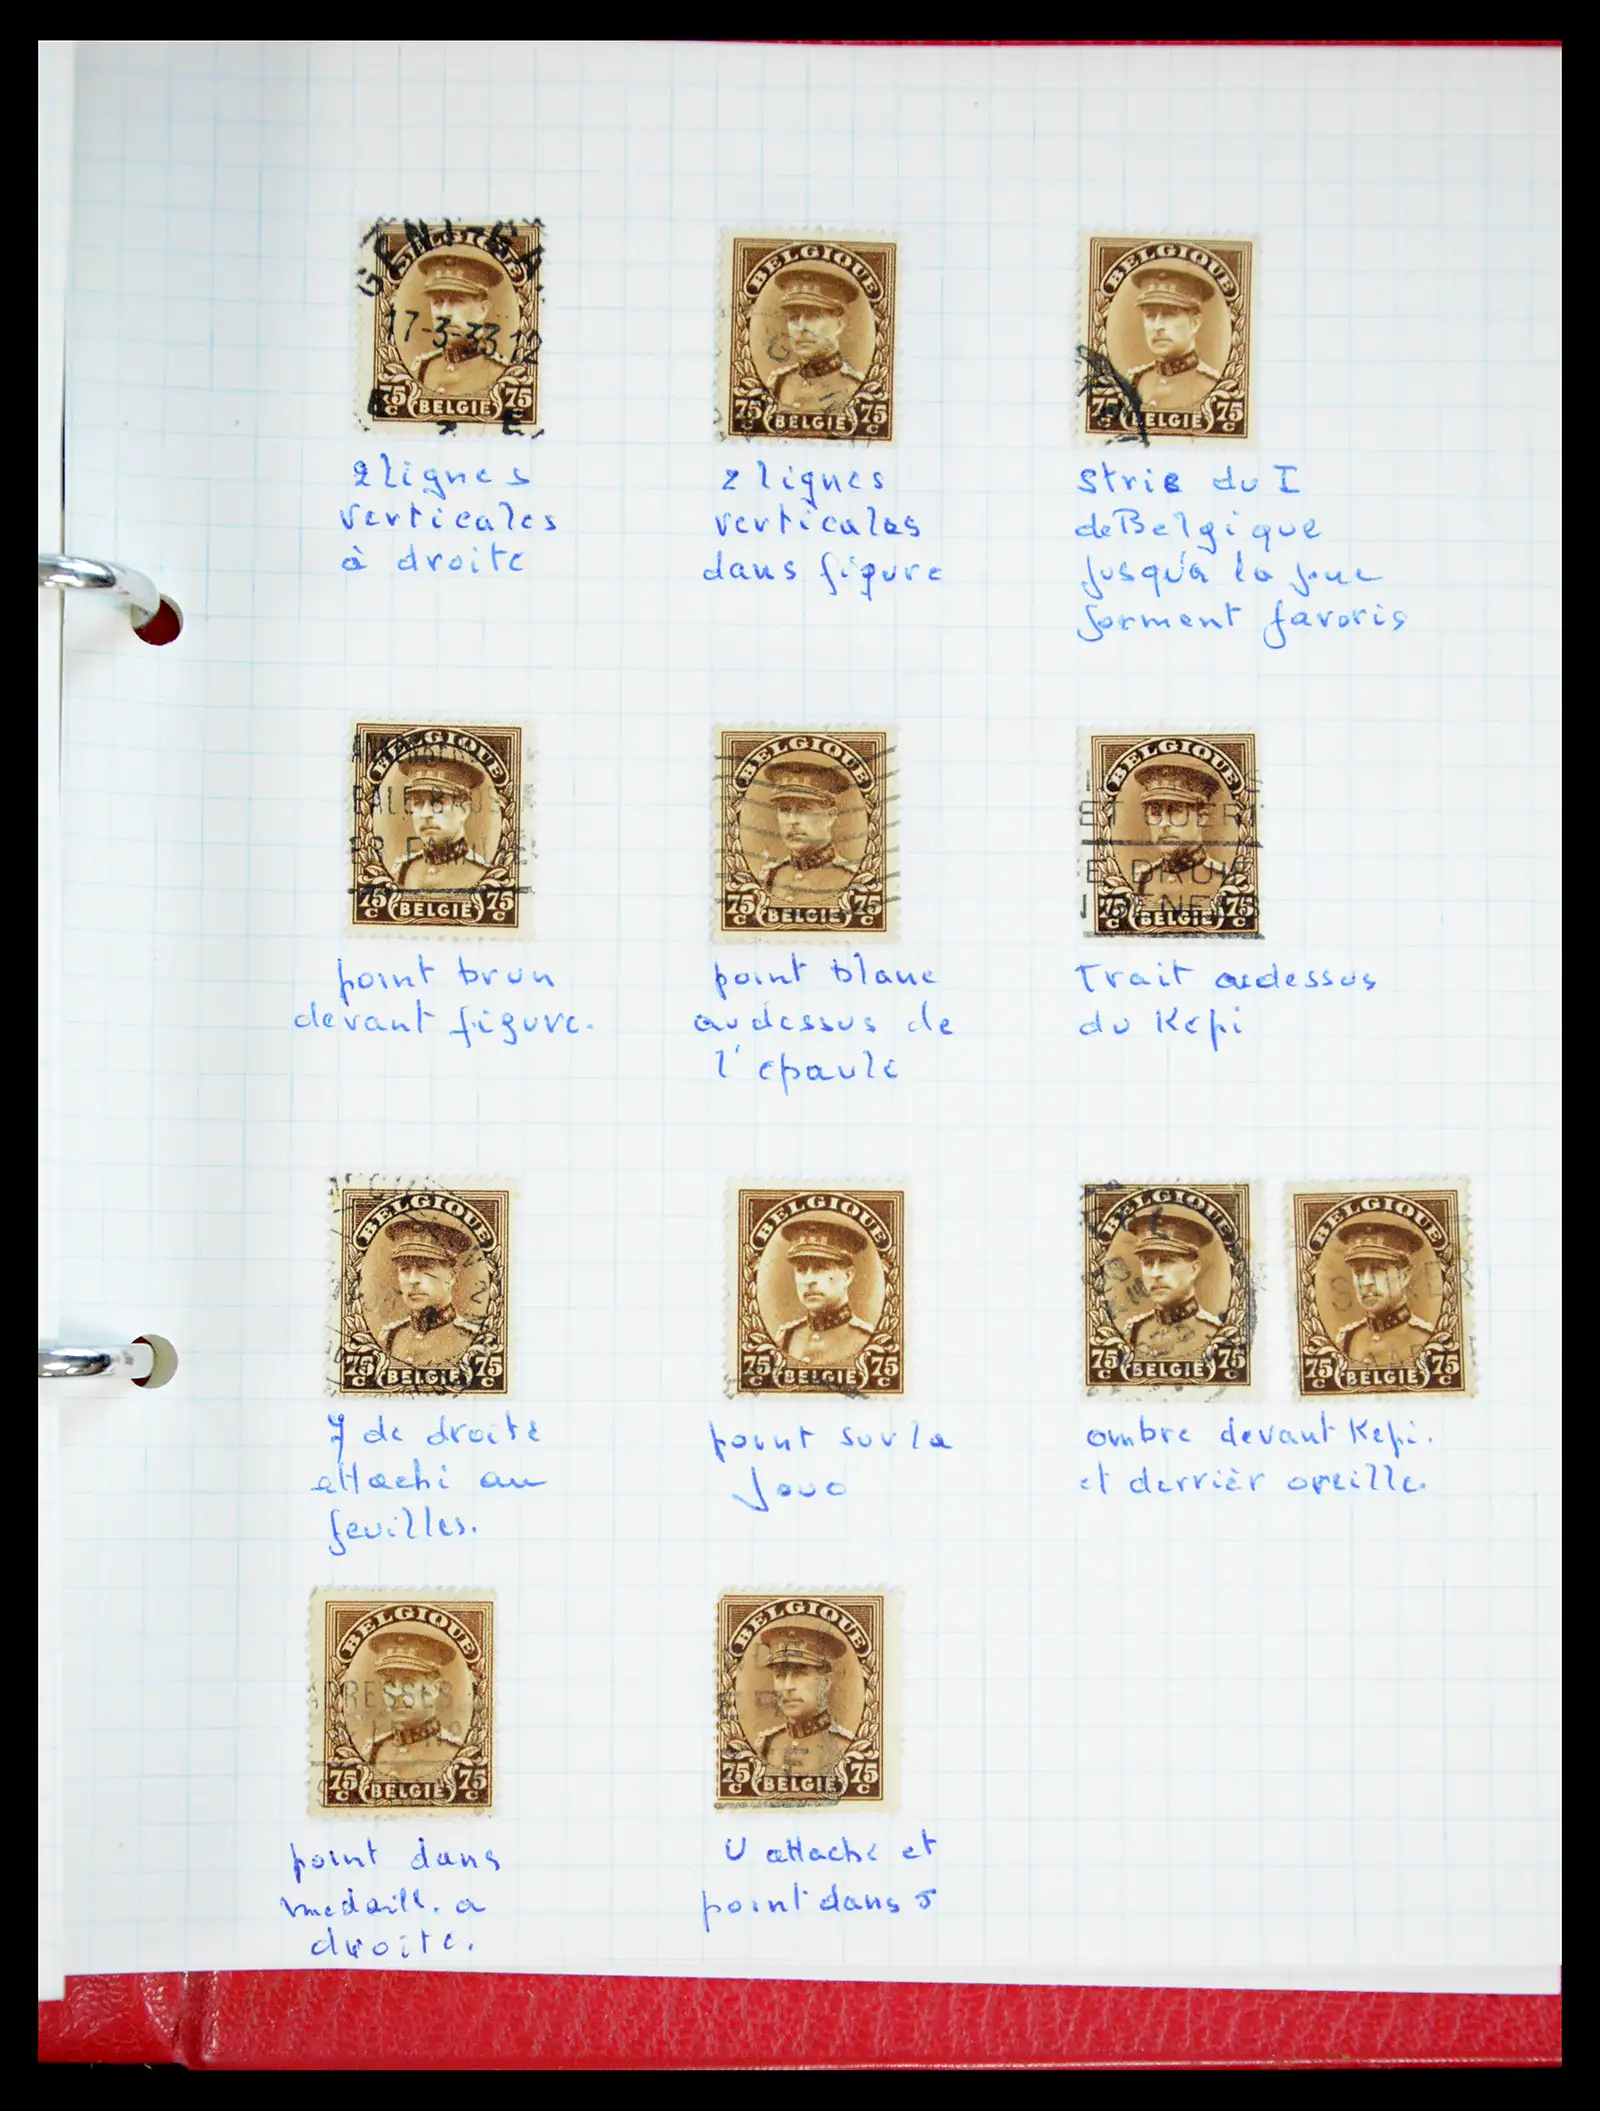 GENT-GA
17-3-33.12
BELGIQUE
75 c BELGIE 75 c
BELGIQUE
75 c BELGIE 75 c
BELGIQUE
75 c BELGIE 75 c
2 lignes
verticales
à droite
2 lignes
verticales
dans figure
Strie du I
de Belgique
jusqu'a la joue
forment favoris
BELGIQUE
75 c BELGIE 75 c
BELGIQUE
75 c BELGIE 75 c
BELGIQUE
75 c BELGIE 75 c
point brun
devant figure.
point blanc
audessus de
l'epaule
Trait audessus
du Kepi
BELGIQUE
75 c BELGIE 75 c
BELGIQUE
75 c BELGIE 75 c
BELGIQUE
75 c BELGIE 75 c
BELGIQUE
75 c BELGIE 75 c
7 de droite
attaché au
feuilles.
point sur la
joue
ombre devant Kepi.
et derrièr oreille.
BELGIQUE
75 c BELGIE 75 c
BELGIQUE
75 c BELGIE 75 c
point dans
medaill. a
droite.
U attaché et
point dans 5